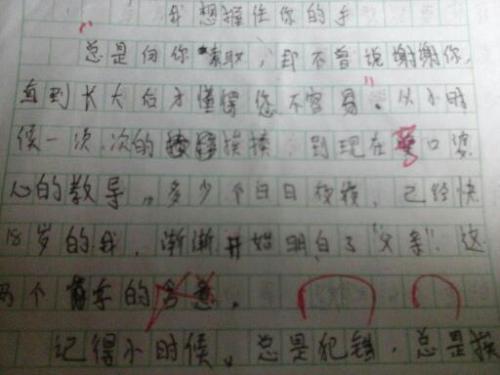 我想握住你的手
"总是向你索取,却不曾说谢谢你,
直到长大后才懂得您不容易"。从小时
候一次次的挨揍,到现在苦口婆
心的教导,多少个白日夜夜,已经快
18岁的我,渐渐开始明白了"父亲"这
两个字的含意。
记得小时候,总是犯错,总是挨